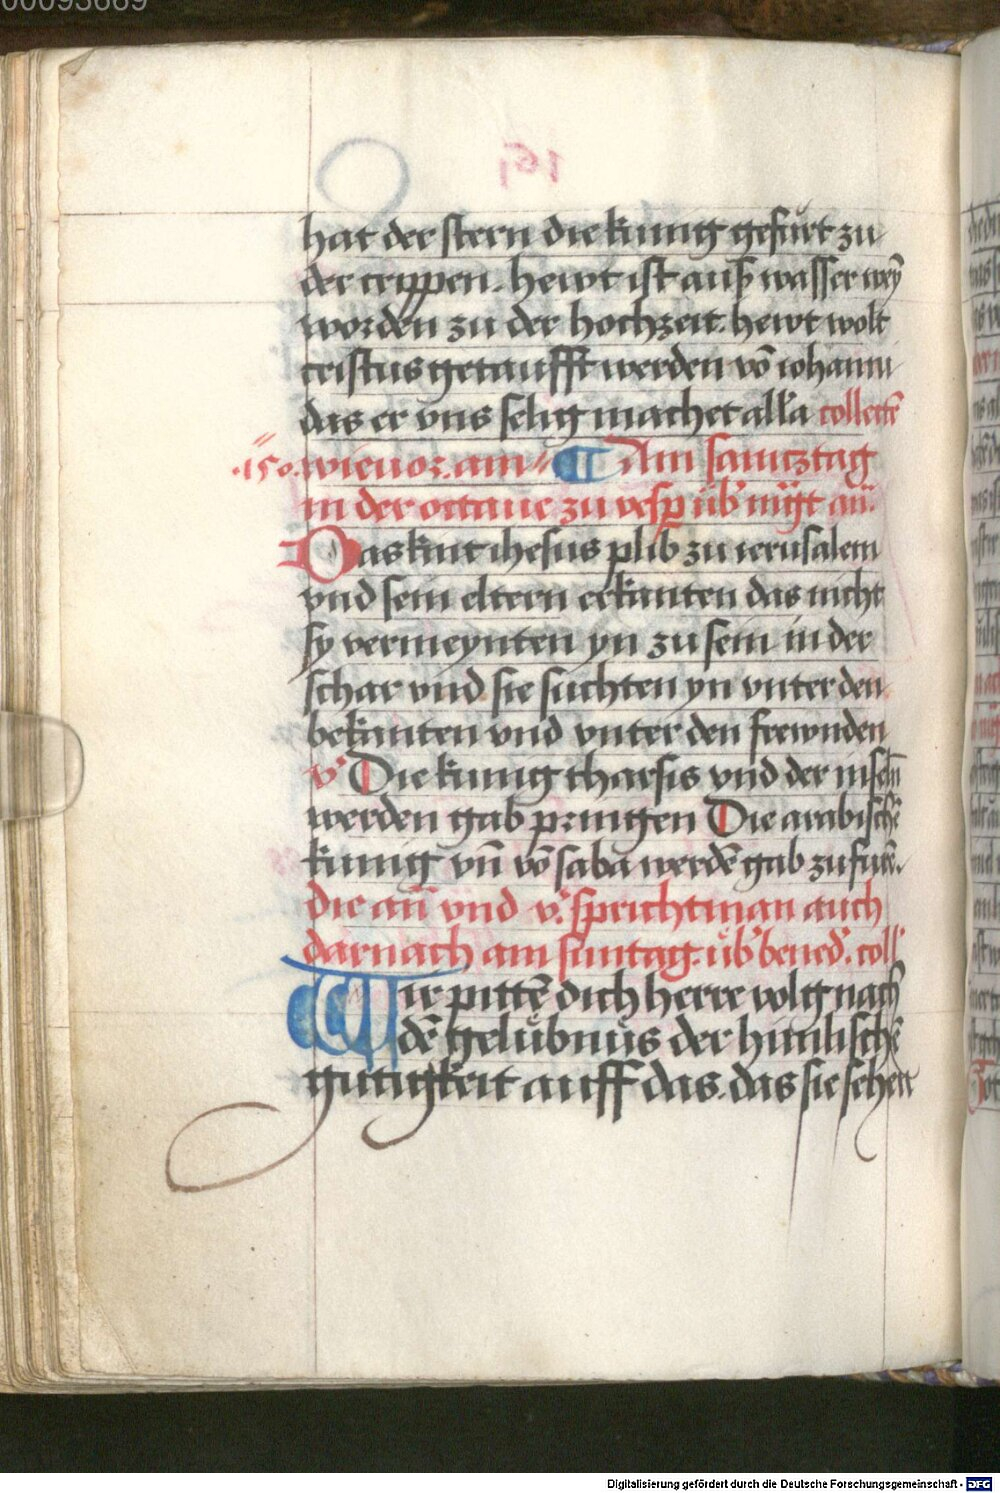 00093669
hat der stern die kunig gefürt zu
der crippen. hewt ist auß wasser wey̅
worden zu der hochzeit. hewt wolt
cristus getaufft werden vo̅ iohanni
das er vns selig machet all'a collecte̅
.150. wie vor. am ¶ Am samtztag
in der octaue zu vesp̲ üb' m̅gt an̅.
Das kint ihesus plib zu ierusalem
vnd sein eltern erkanten das nicht
sy vermeynten yn zu sein in der
schar vnd sie suchten yn vnter den
bekanten vnd vnter den frewnden
v' Die kunig tharsis vnd der inseln̅
werden gab pringen Die arabische̅
kunig vn̅ vo̅ saba werde̅ gab zu fure̅.
die an̅ vnd v'. spricht man auch
darnach am suntag. üb' bened'. coll'
Wir pitte̅ dich herre volig nach
de̅ gelübnüs der himlische̅
gutigkeit auff das. das sie sehen
Digitalisierung gefördert durch die Deutsche Forschungsgemeinschaft - DFG